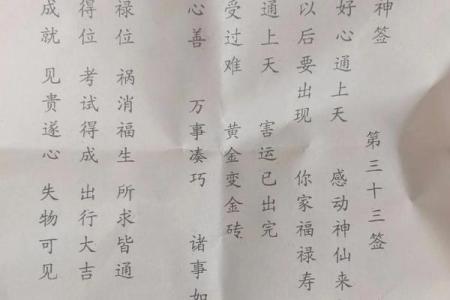 神签 第三十三签
好心通上天 感动神仙来
以后要出现 你家福禄寿
通上天 害运已出完
受过难 黄金变金砖
心善 万事凑巧 诸事如
禄位 祸消福生 所求皆通
得位 考试得成 出行大吉
成就 见贵遂心 失物可见